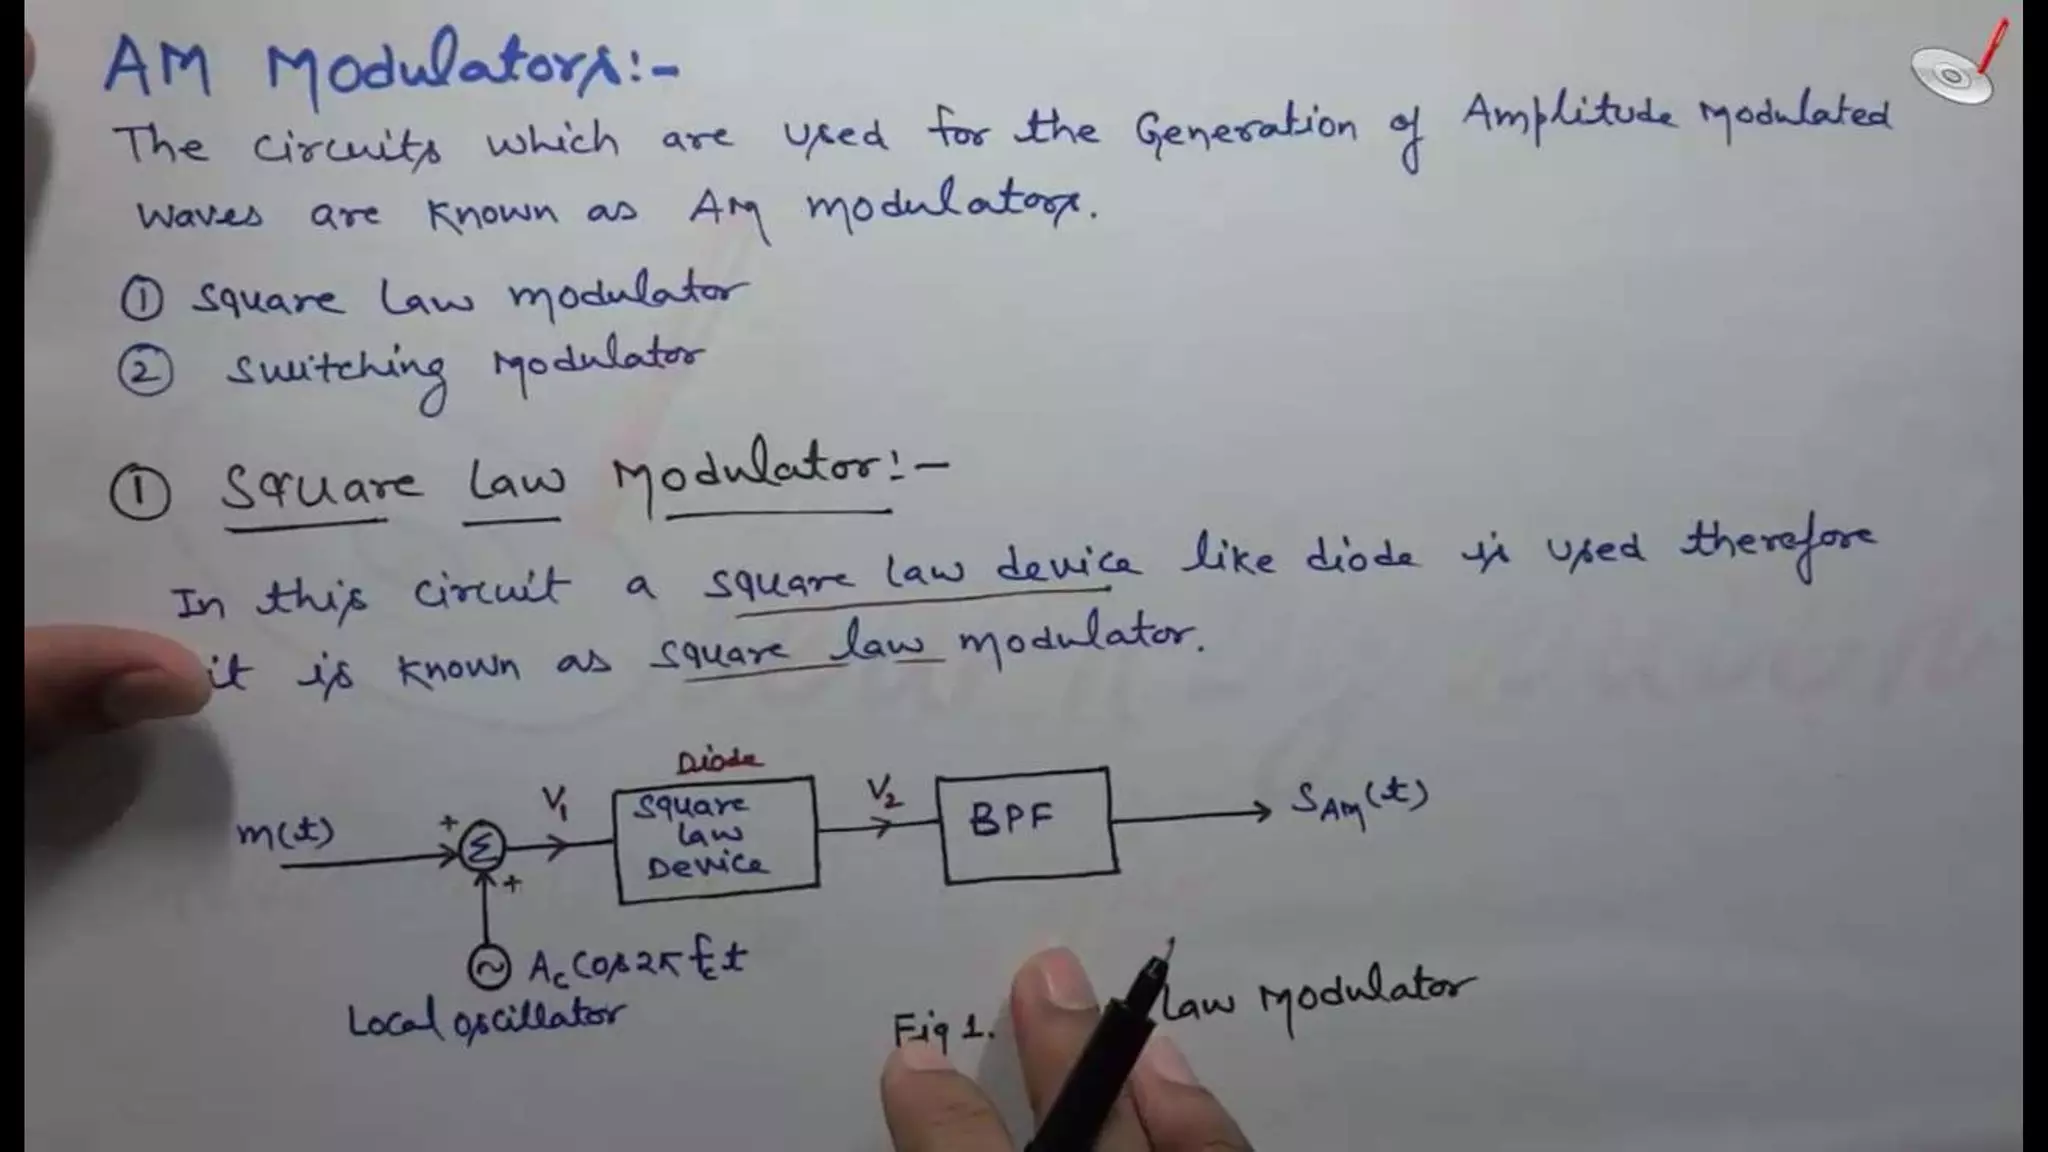 AM Modulators:-
The circuits which are used for the Generation of Amplitude Modulated
waves are known as AM modulators.
① square law modulator
② switching Modulator
① Square Law Modulator:-
In this circuit a square law device like diode is used therefore
it is known as square law modulator.
Diode
m(t)
+
Σ
+
V₁
square
law
Device
V₂
BPF
S_AM(t)
~ A_c cos 2π f_c t
Local oscillator
Fig 1. law Modulator